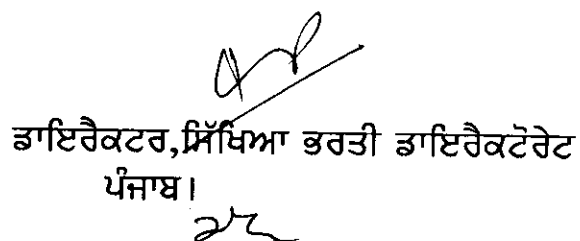 ਡਾਇਰੈਕਟਰ,ਸਿੱਖਿਆ ਭਰਤੀ ਡਾਇਰੈਕਟੋਰੇਟ
ਪੰਜਾਬ।